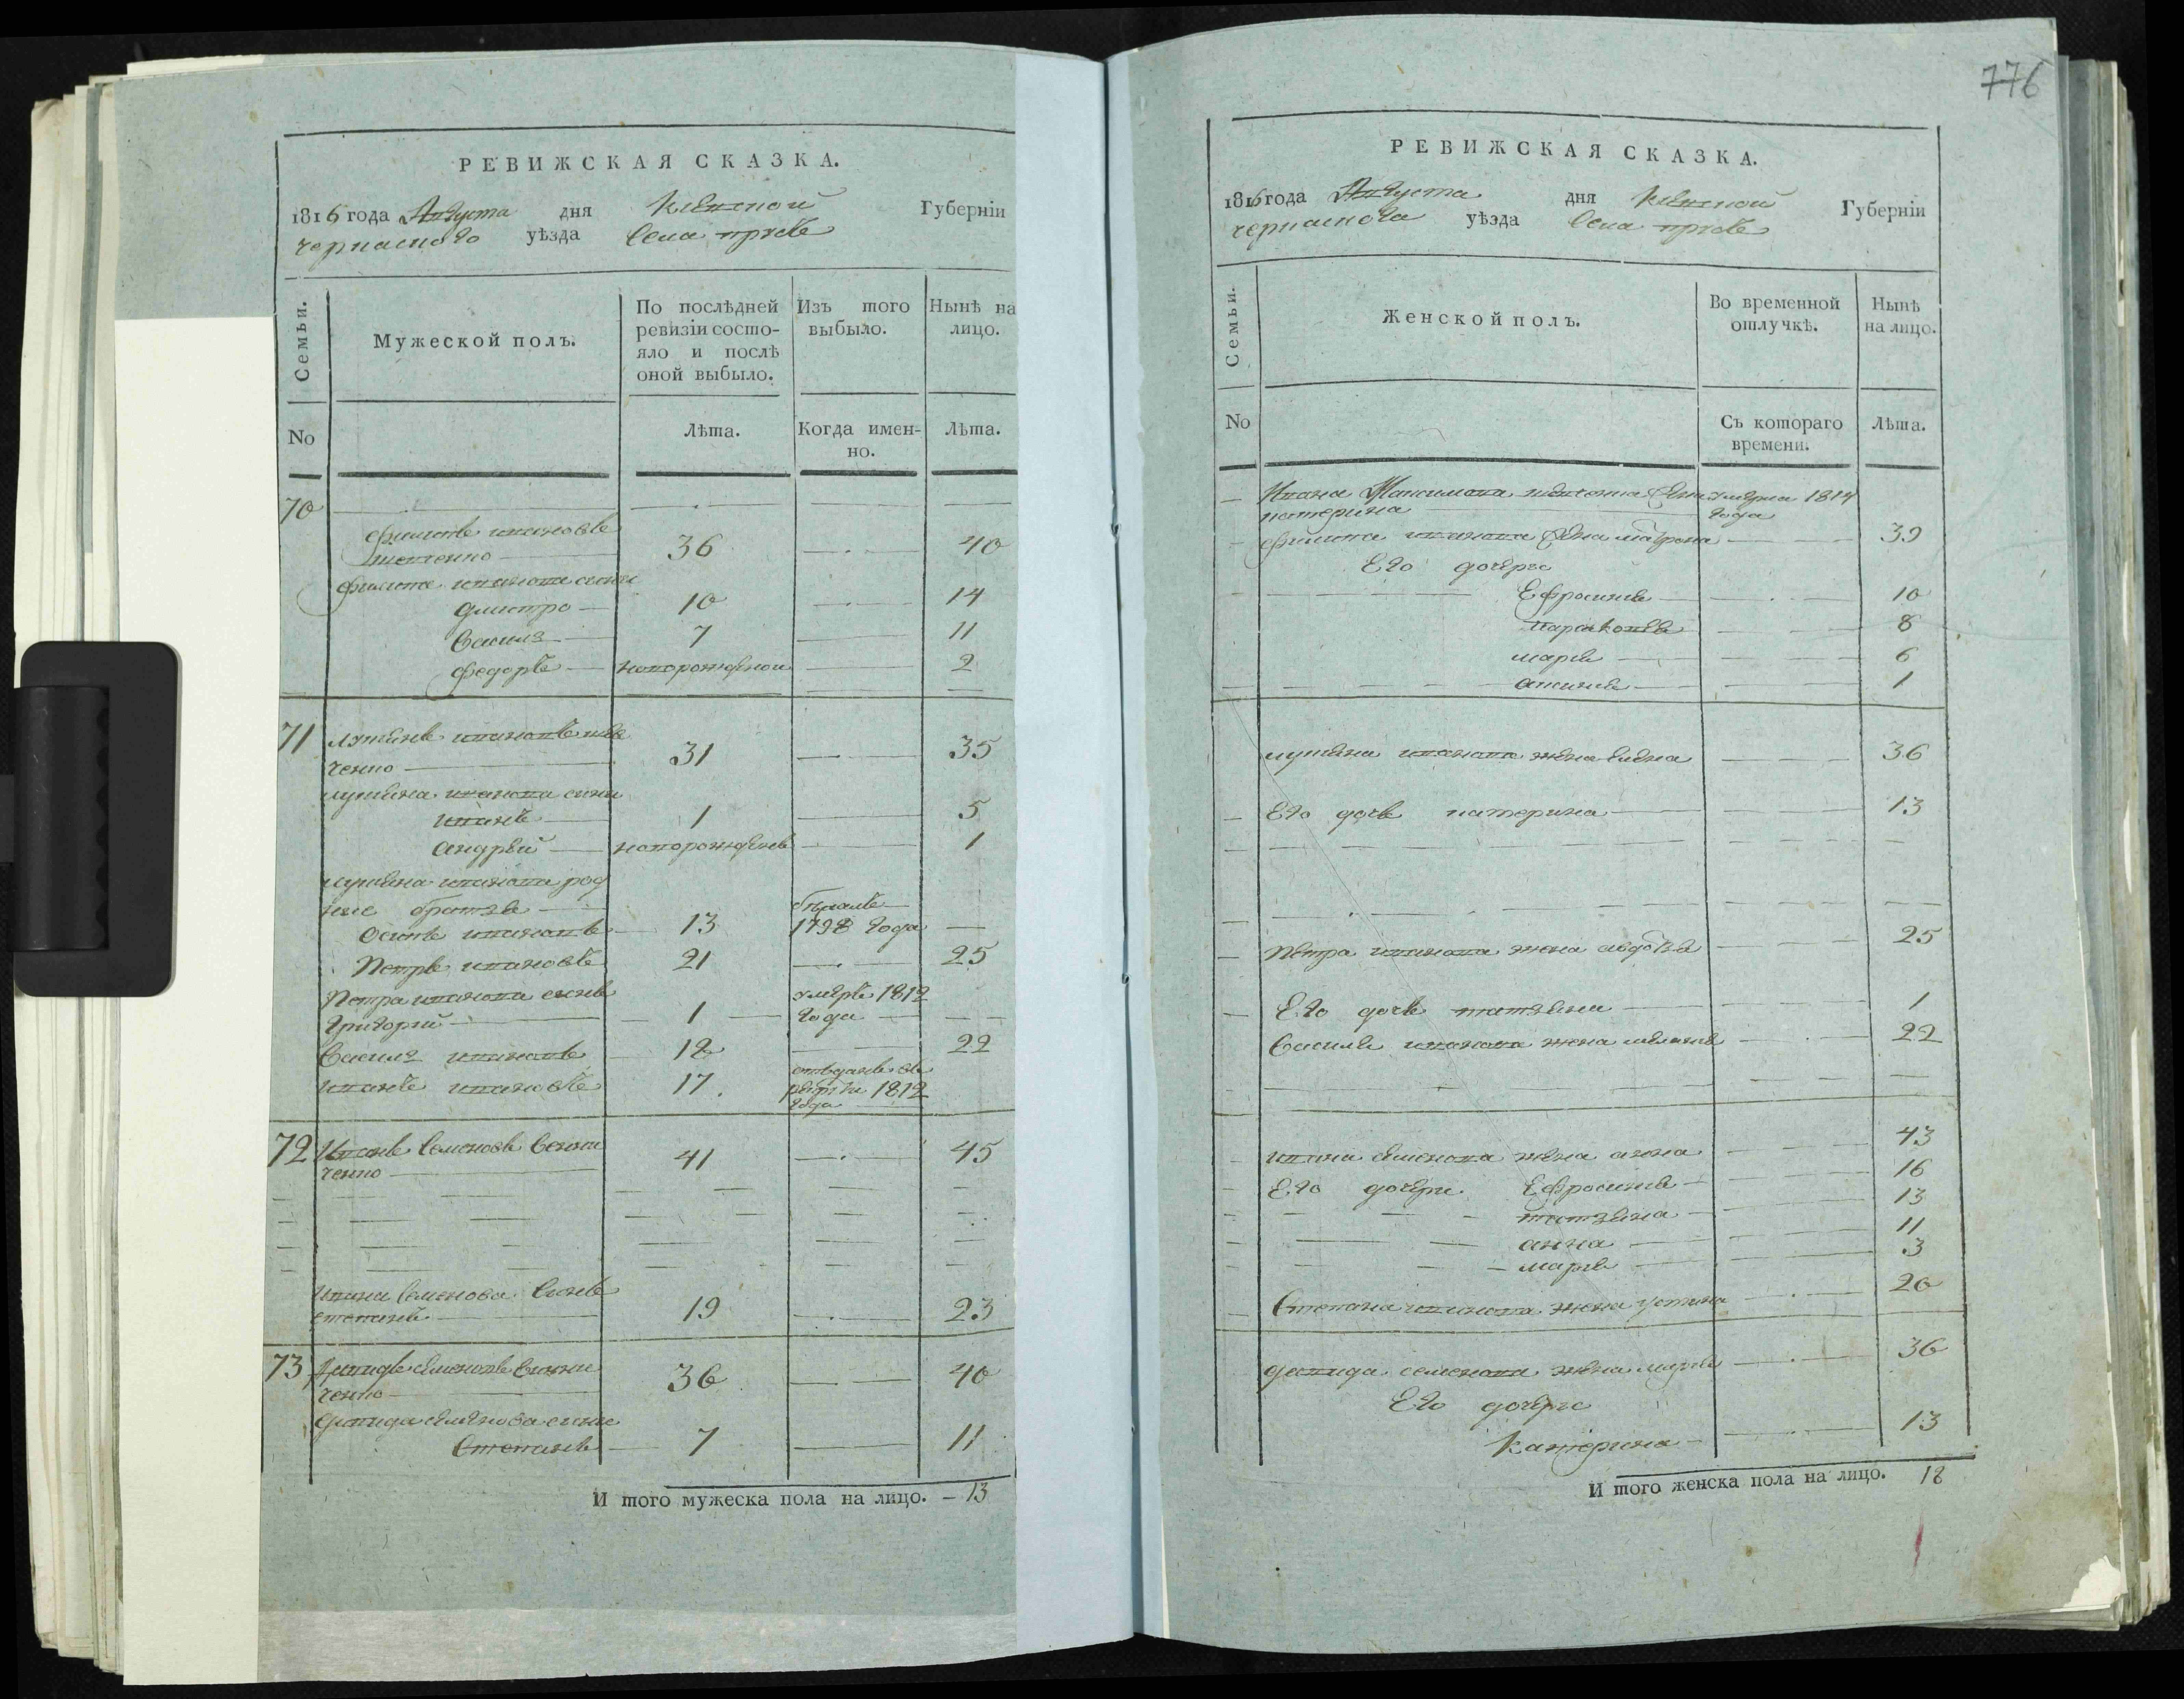 РЕВИЖСКАЯ СКАЗКА.
1816 года Августа дня Киевской Губерніи
черкаского уѣзда Села
Семьи.
Мужеской полъ.
По послѣдней ревизіи состо-
яло и послѣ
оной выбыло.
Изъ того
выбыло.
Нынѣ на
лицо.
No
Лѣта.
Когда имен-
но.
Лѣта.
70
Филипъ ивановъ
36 40
Филипа иванова сыни
дмитро 10 14
Василь 7 11
Федоръ новорожденои 2
71 лукянъ ивановъ
ченко 31 35
лукяна иванова сыни
иванъ 1 5
андрѣй новорожденъ 1
лукяна иванова род
ные братья
Осипъ ивановъ 13 бѣжалъ 1798 года
Петръ ивановъ 21 25
Петра иванова сынъ
Григорий 1 умеръ 1812 года
Василь ивановъ 18 22
иванъ ивановъ 17 отъданъ въ рекрути 1812 года
72 Иванъ Семеновъ
ченко 41 45
ивана Семенова Сынъ
степанъ 19 23
73 Давидъ Семеновъ
ченко 36 40
давида семенова сынъ
Степанъ 7 11
И того мужеска пола на лицо. – 13
776
РЕВИЖСКАЯ СКАЗКА.
1816 года Августа дня Киевской Губерніи
черкаского уѣзда Села
Семьи.
Женской полъ.
Во временной
отлучкѣ.
Нынѣ
на лицо.
No
Съ котораго
времени.
Лѣта.
Ивана Максимова жена умерла 1814
катерина года
Филипа иванова жена матрона 39
Его дочери
Ефросиня 10
параскевя 8
маря 6
1
лукяна иванова жена елена 36
Его дочь катерина 13
Петра иванова жена авдотя 25
Его дочь татяна 1
Василя иванова жена меланя 22
ивана семенова жена анна 43
Его дочери Ефросиня 16
татяна 13
анна 11
маря 3
Степана иванова жена устина 20
давида семенова жена маря 36
Его дочери
Катерина 13
И того женска пола на лицо. 18